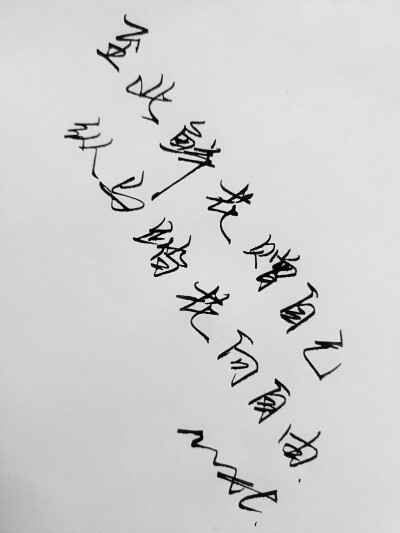 至此鲜花赠自己
纵马踏花向自由.